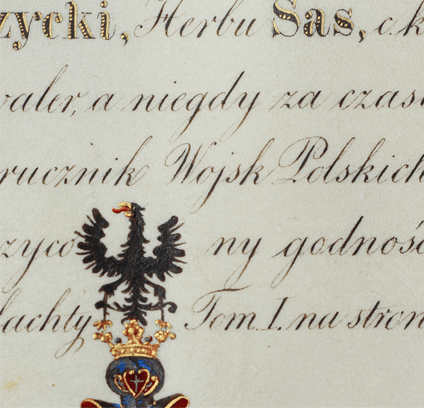 zycki, Herbu Sas, c.k
waler, a niegdy za czas
rucznik Wojsk Polskich
zyco ny godnośc
lachty Tom. I. na stron